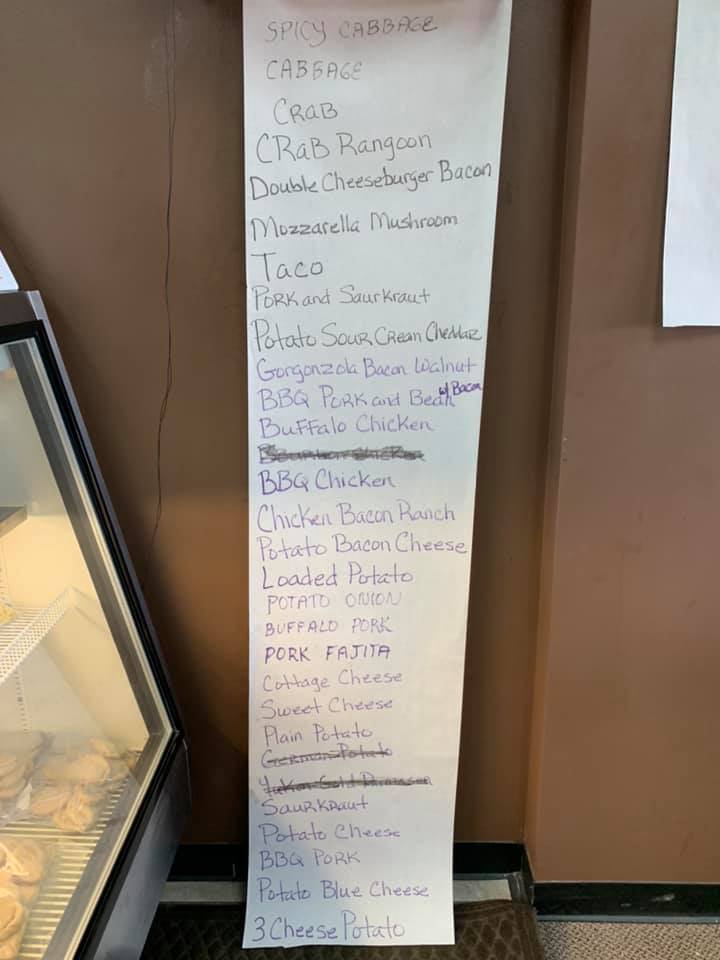 SPICY CABBAGE
CABBAGE
CRaB
CRaB Rangoon
Double Cheeseburger Bacon
Mozzarella Mushroom
Taco
PORK and Saurkraut
Potato Sour Crean Cheddar
Gorgonzola Bacon Walnut
BBQ PORK and Bean w/ Bacon
Buffalo Chicken
Bourbon Chicken
BBQ Chicken
Chicken Bacon Ranch
Potato Bacon Cheese
Loaded Potato
POTATO ONION
BUFFALO PORK
PORK FAJITA
Cottage Cheese
Sweet Cheese
Plain Potato
German Potato
Yukon Gold Parmesan
Saurkraut
Potato Cheese
BBQ PORK
Potato Blue Cheese
3 Cheese Potato